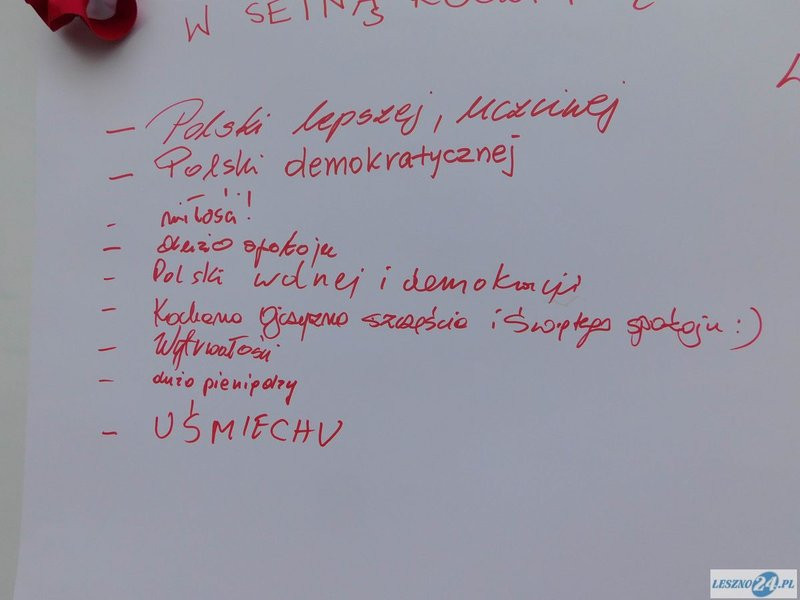 W SETNĄ
- Polski lepszej, uczciwej
- Polski demokratycznej
- miłości!
- dużo spokoju
- Polski wolnej i demokracji
- Kochana Ojczyzno szczęścia i Świętego spokoju :)
- Wytrwałości
- dużo pieniędzy
- UŚMIECHU
LESZNO24.PL